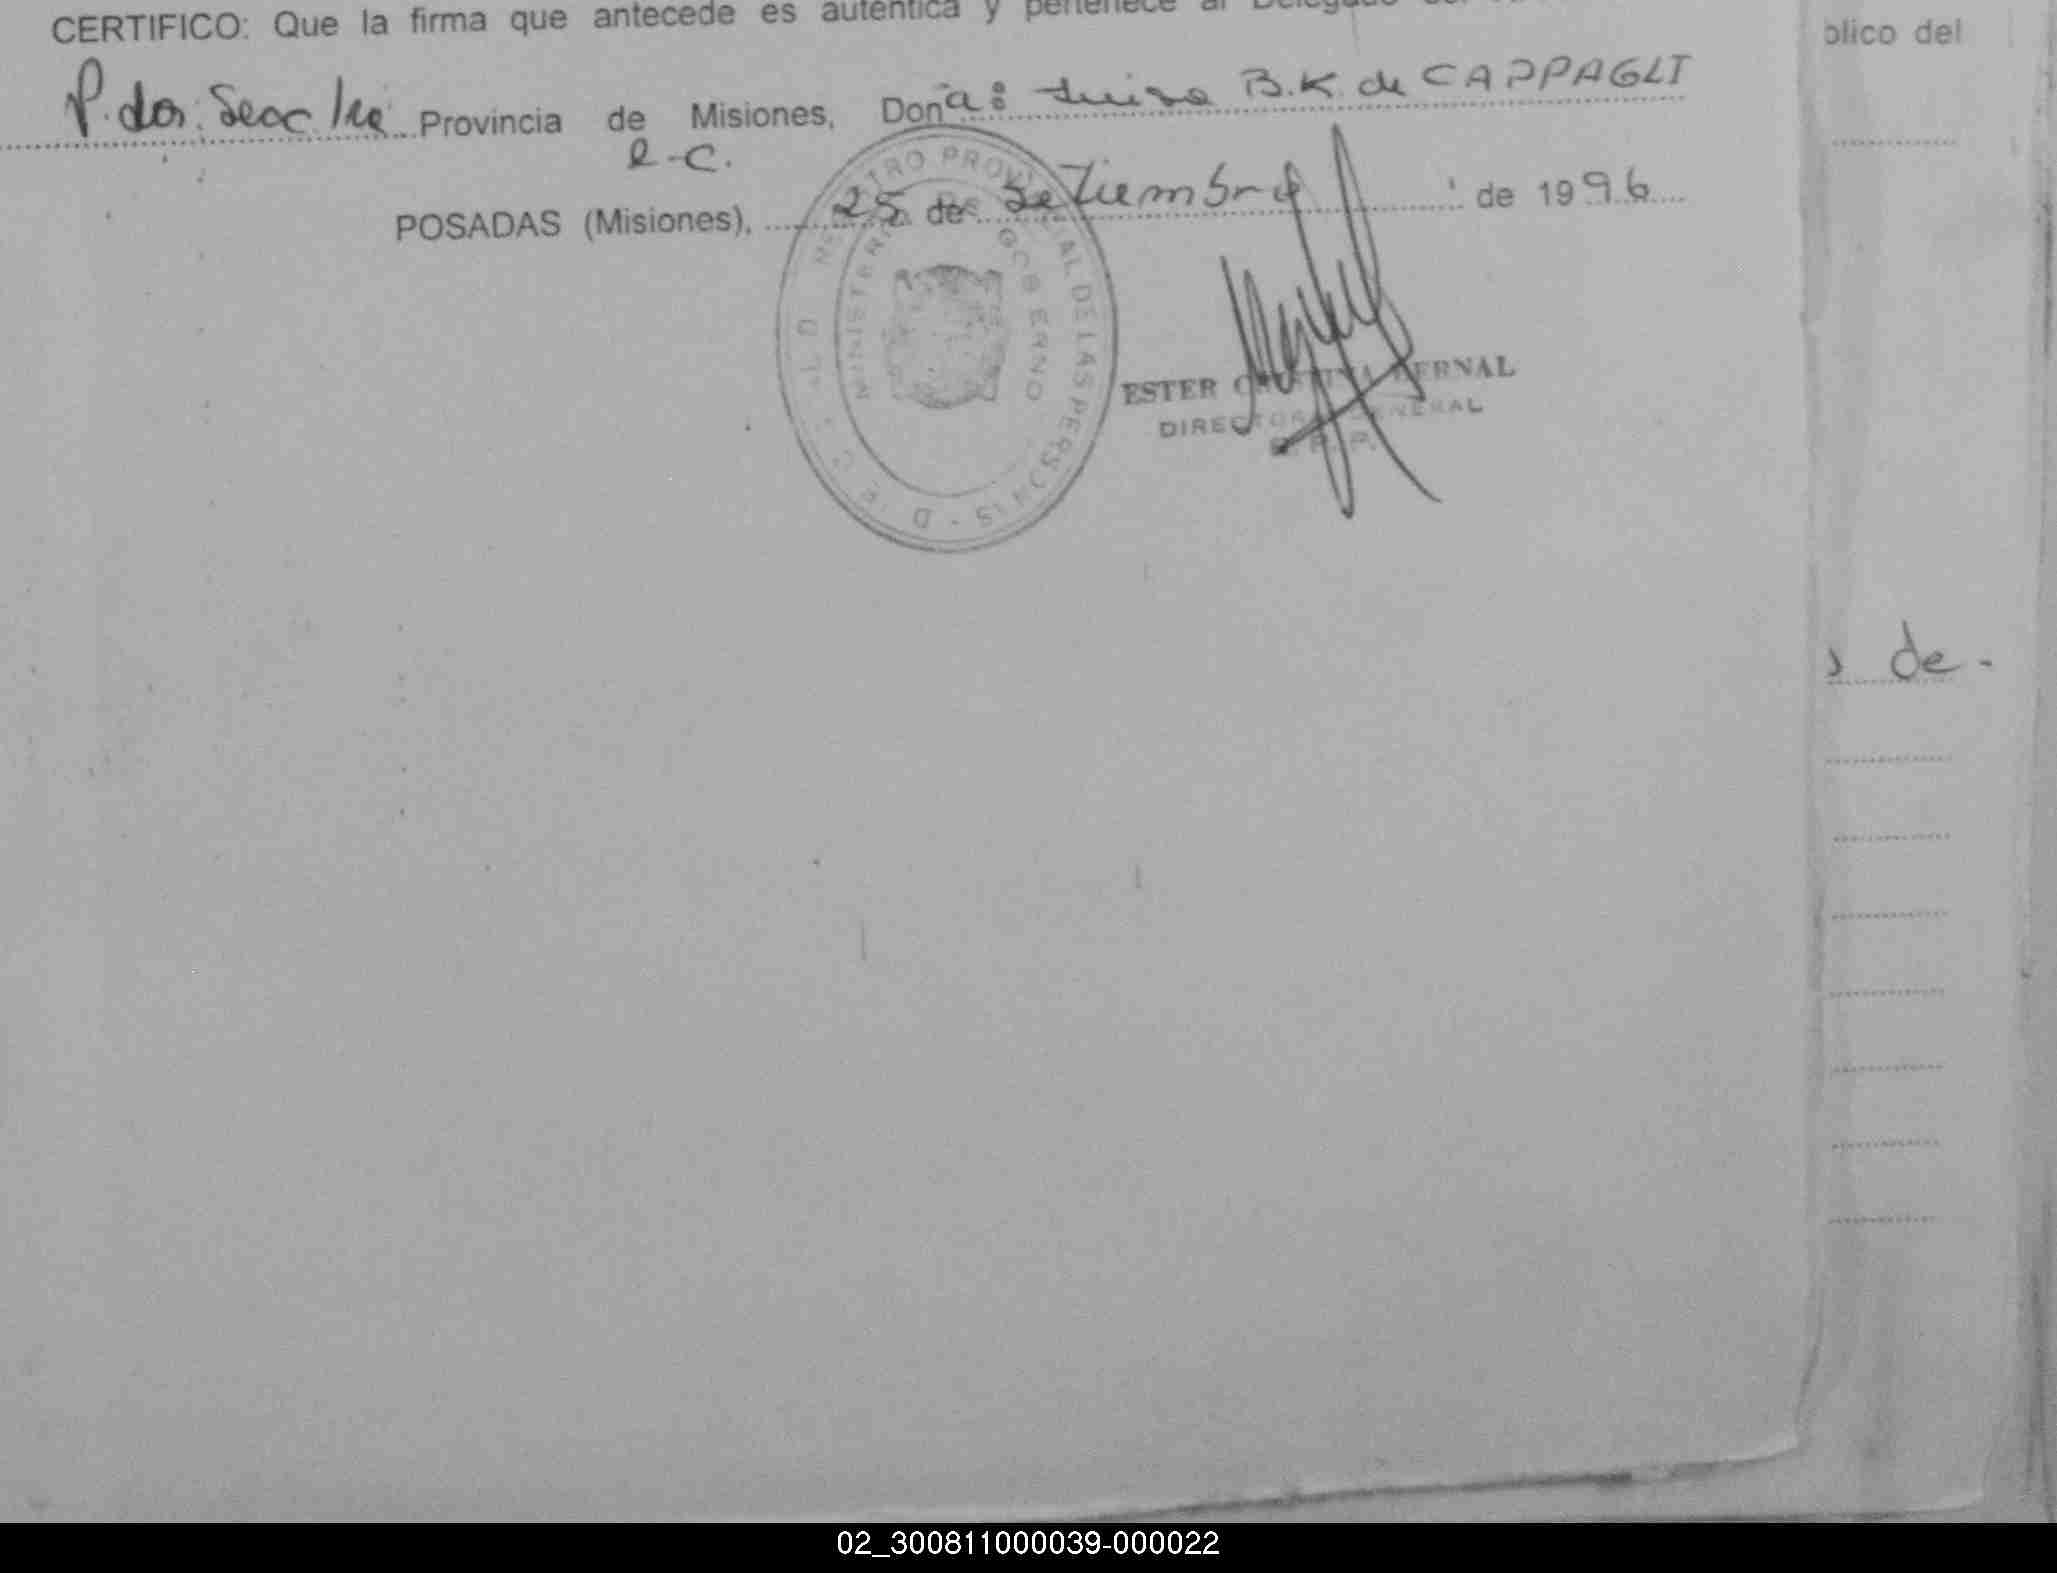 CERTIFICO: Que la firma que antecede es auténtica y pertenece al Delegado
blico del
Provincia de Misiones, Doña: Luisa B.K. de CAPPAGLI
POSADAS (Misiones), 25 de Setiembre de 1996
REGISTRO PROVINCIAL DE LAS PERSONAS
MINISTERIO DE GOBIERNO
ESTER CRISTINA BERNAL
DIRECTORA GENERAL
R. P. P.
s de -
02_300811000039-000022